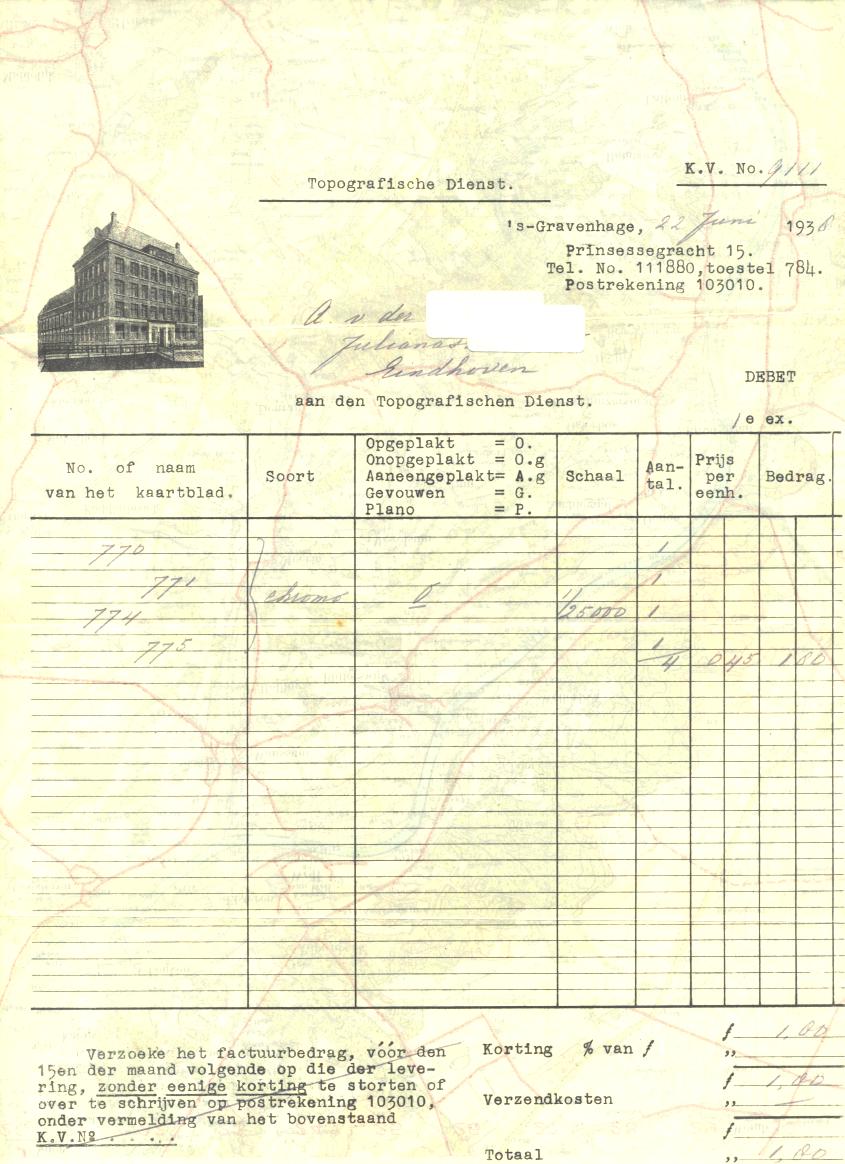 K.V. No. 9111
Topografische Dienst.
's-Gravenhage, 22 Juni 1938
Prinsessegracht 15.
Tel. No. 111880, toestel 784.
Postrekening 103010.
A. v der
Julianas
Eindhoven
DEBET
aan den Topografischen Dienst.
1e ex.
No. of naam van het kaartblad. Soort Opgeplakt = O. Onopgeplakt = O.g Aaneengeplakt= A.g Gevouwen = G. Plano = P. Schaal Aan-tal. Prijs per eenh. Bedrag.
770 1
771 1
chromo O 1/25000
774 1
775 1
4 0 45 1 80
Verzoeke het factuurbedrag, vóór den
15en der maand volgende op die der leve-
ring, zonder eenige korting te storten of
over te schrijven op postrekening 103010,
onder vermelding van het bovenstaand
K.V.Nº . . . . .
f 1,80
Korting % van f „
f 1,80
Verzendkosten „ —
f
Totaal „ 1,80